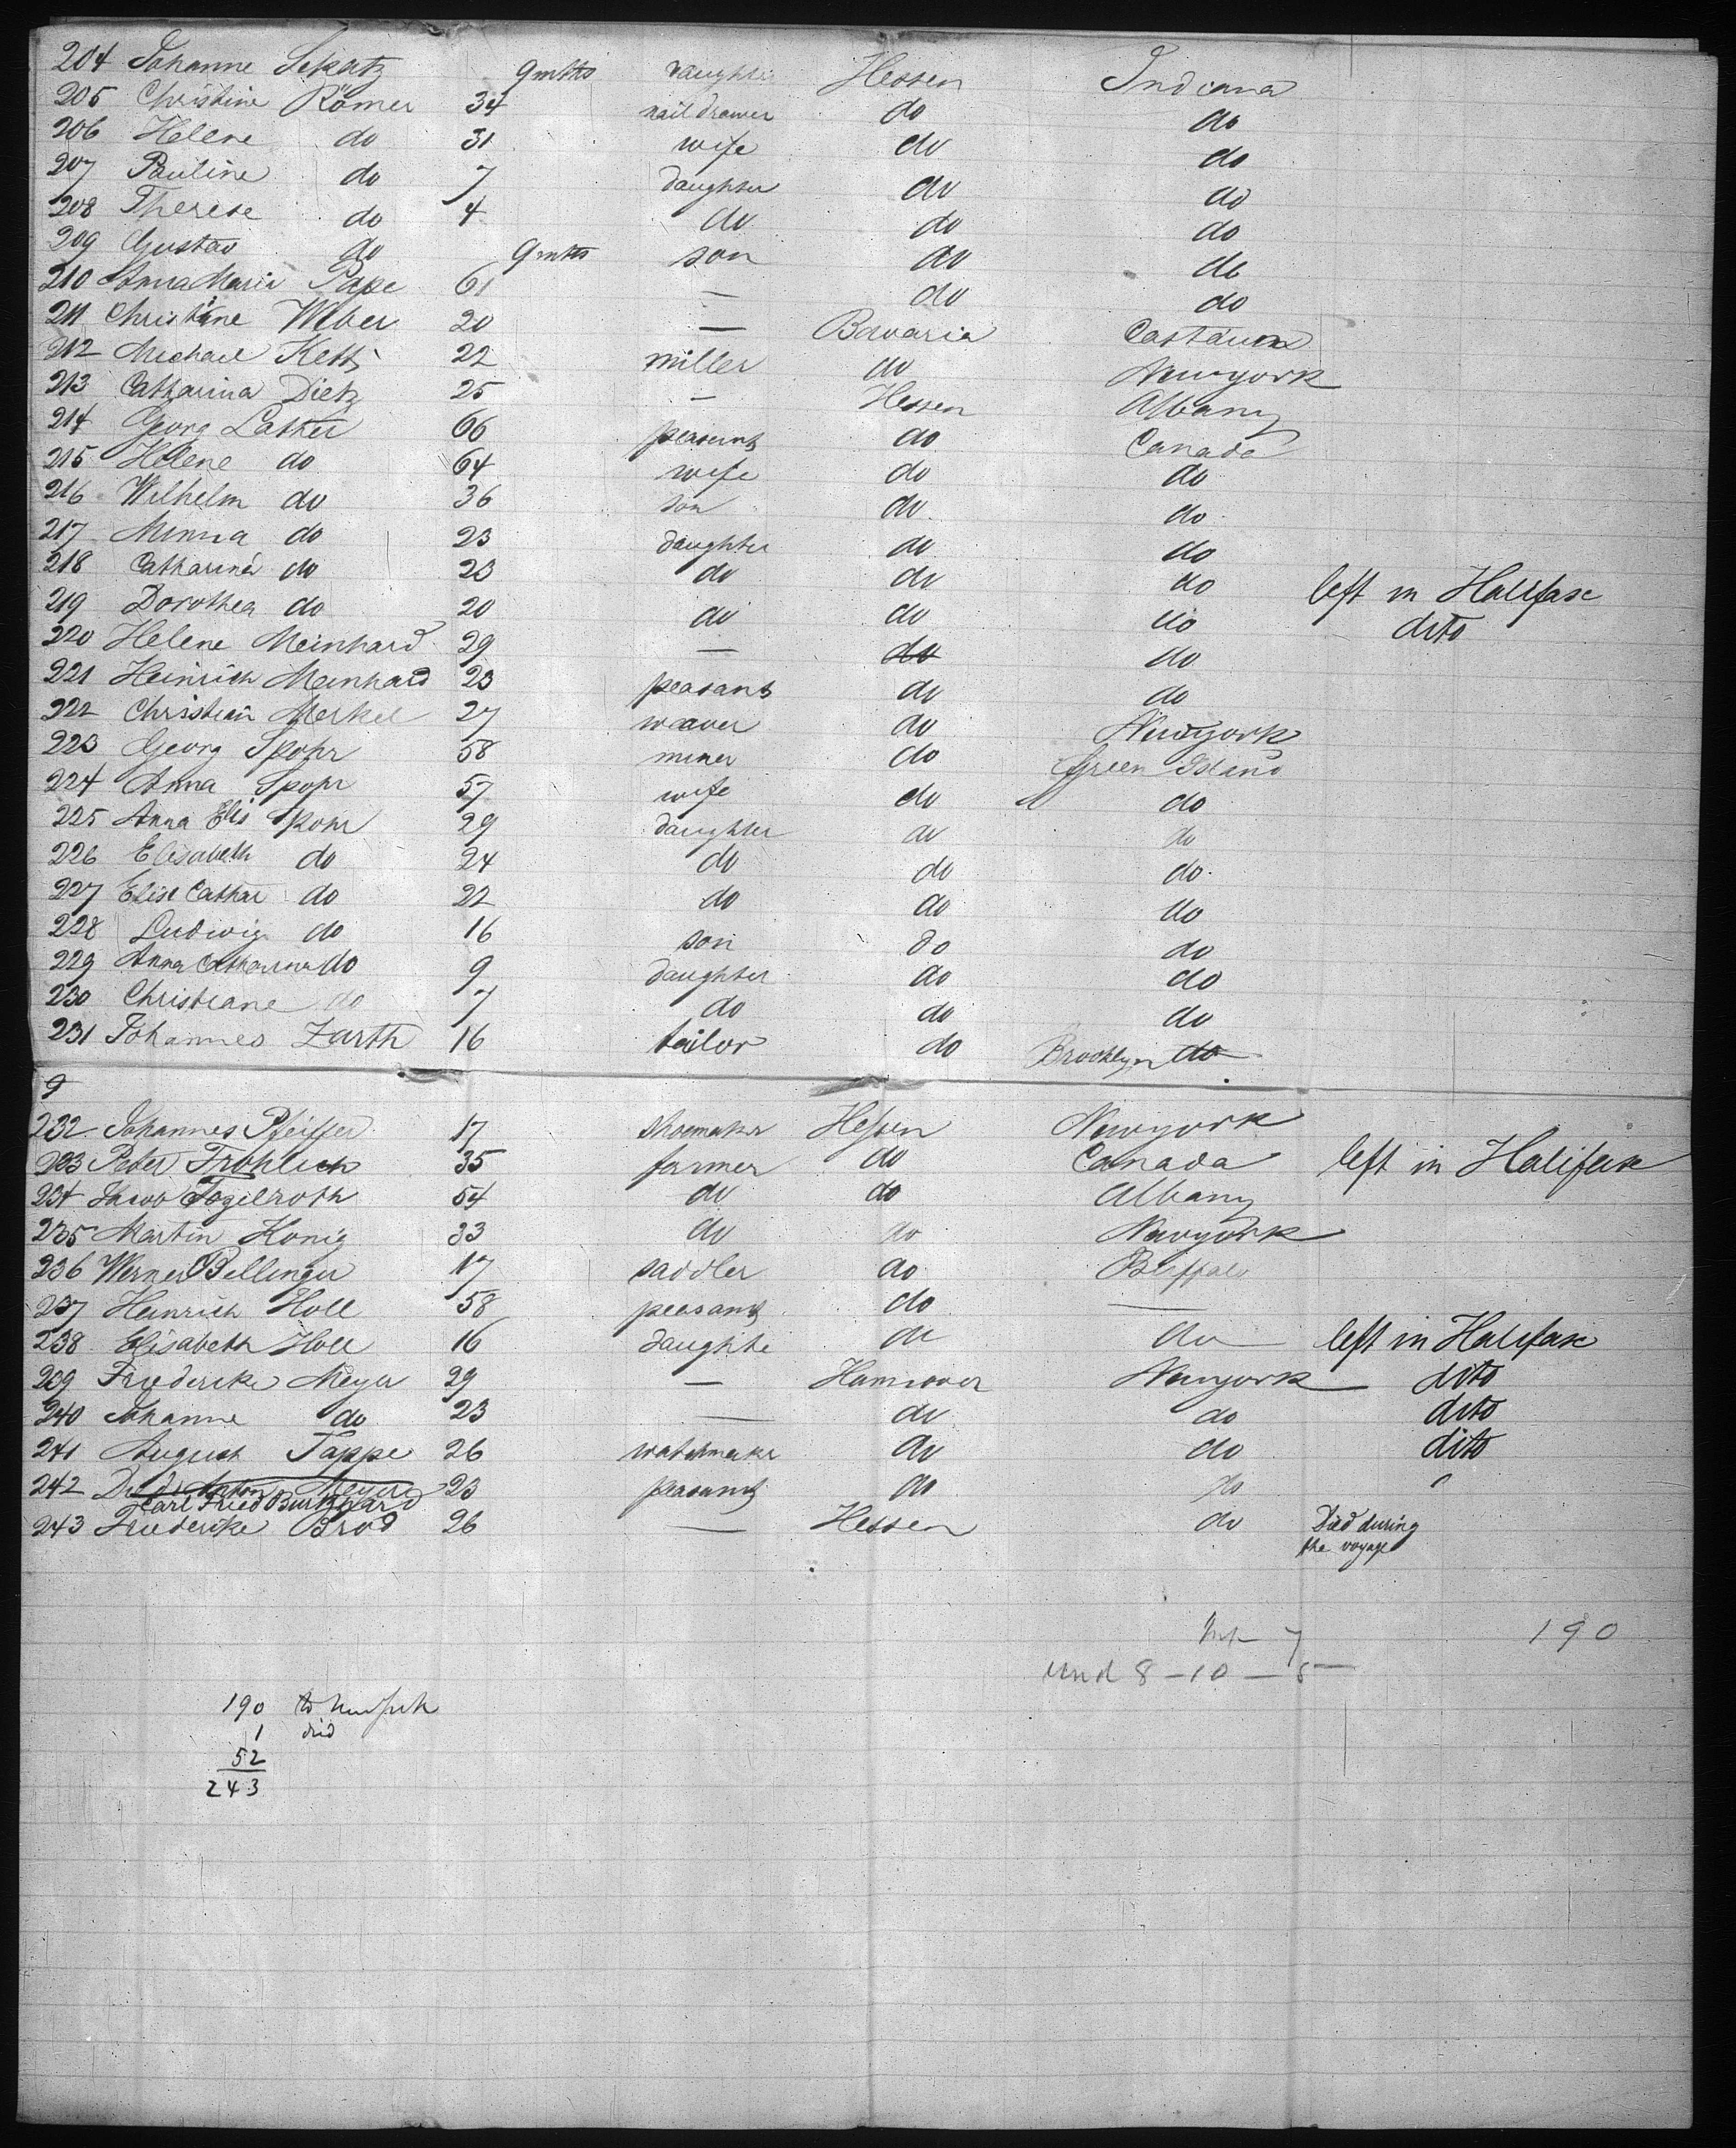 204 Johanne Schatz 9 mths daughter Hessen Indiana
205 Christine Römer 34 nail drawer do do
206 Helene do 31 wife do do
207 Pauline do 7 daughter do do
208 Therese do 4 do do do
209 Gustav do 9 mths son do do
210 Anna Maria Pape 61 — do do
211 Christine Weber 20 — Bavaria
212 Michael 22 miller do Newyork
213 Catharina Dietz 25 — Hessen Albany
214 Georg Lather 66 peasant do Canada
215 Helene do 64 wife do do
216 Wilhelm do 36 son do do
217 Minna do 23 daughter do do
218 Catharina do 23 do do do left in Halifax
219 Dorothea do 20 do do do dito
220 Helene Meinhard 29 — do do
221 Heinrich Meinhard 23 peasant do do
222 Christian Merkel 27 weaver do Newyork
223 Georg Spohr 58 miner do Green Island
224 Anna Spohr 57 wife do do
225 Anna Elis Spohr 29 daughter do do
226 Elisabeth do 24 do do do
227 Elise Cathar do 22 do do do
228 Ludwig do 16 son do do
229 Anna Catharina do 9 daughter do do
230 Christiane do 7 do do do
231 Johannes Zarth 16 tailor do Brooklyn do
9
232 Johannes Pfeiffer 17 shoemaker Hessen Newyork
233 Peter Frohlich 35 farmer do Canada left in Halifax
234 Jacob Fogelroth 54 do do Albany
235 Martin Konig 33 do do Newyork
236 Werner Bellinger 17 saddler do Buffalo
237 Heinrich Holl 58 peasant do —
238 Elisabeth Holl 16 daughte do do left in Halifax
239 Friederike Meyer 29 — Hannover Newyork dito
240 Johanne do 23 — do do dito
241 August Tappe 26 watchmaker do do dito
242 Meyer 23 peasant do do "
Carl Fried Burkhard
243 Friederike Brod 26 — Hessen do Died during
the voyage
7 190
und 8 - 10 - 5 -
190 to
1 died
52
243